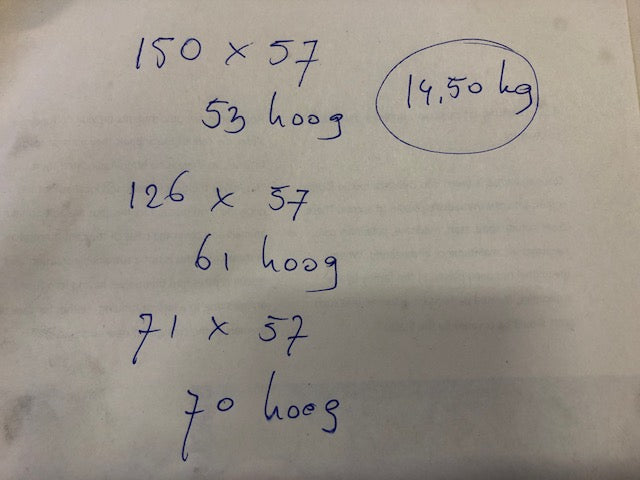 150 x 57
14,50 kg
53 hoog
126 x 57
61 hoog
71 x 57
70 hoog